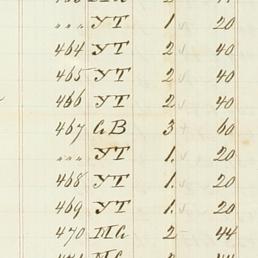 " " " YT 1. 20
464 YT 2 40
465 YT 2 40
466 YT 2 40
467 GB 3 60
" " " YT 1. 20
468 YT 1. 20
469 YT 1. 20
470 MG 2 44